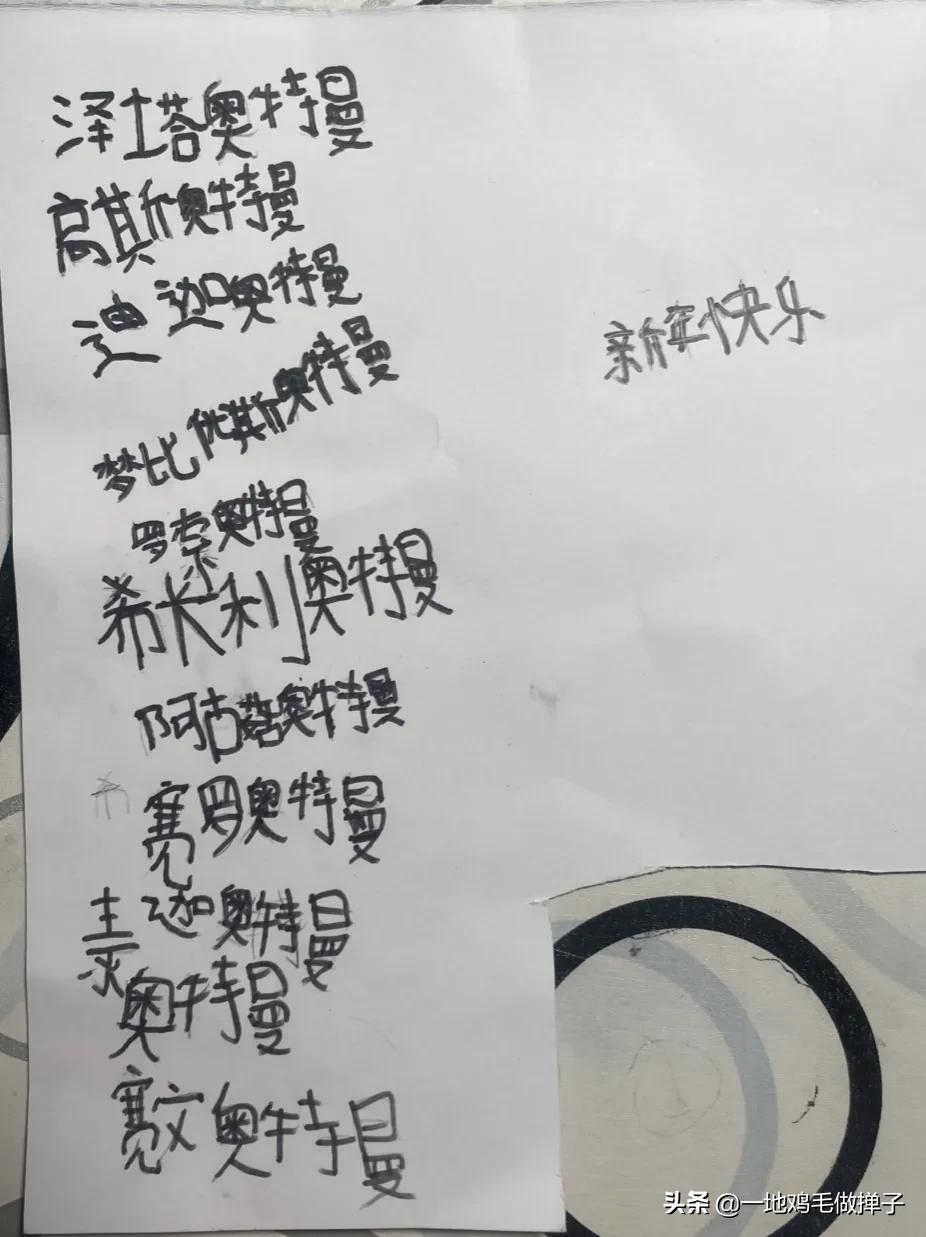 泽塔奥特曼
高斯奥特曼
迪迦奥特曼
新年快乐
梦比优斯奥特曼
罗索奥特曼
希卡利奥特曼
阿古茹奥特曼
赛罗奥特曼
泰迦奥特曼
奥特曼
赛文奥特曼
头条 @一地鸡毛做掸子